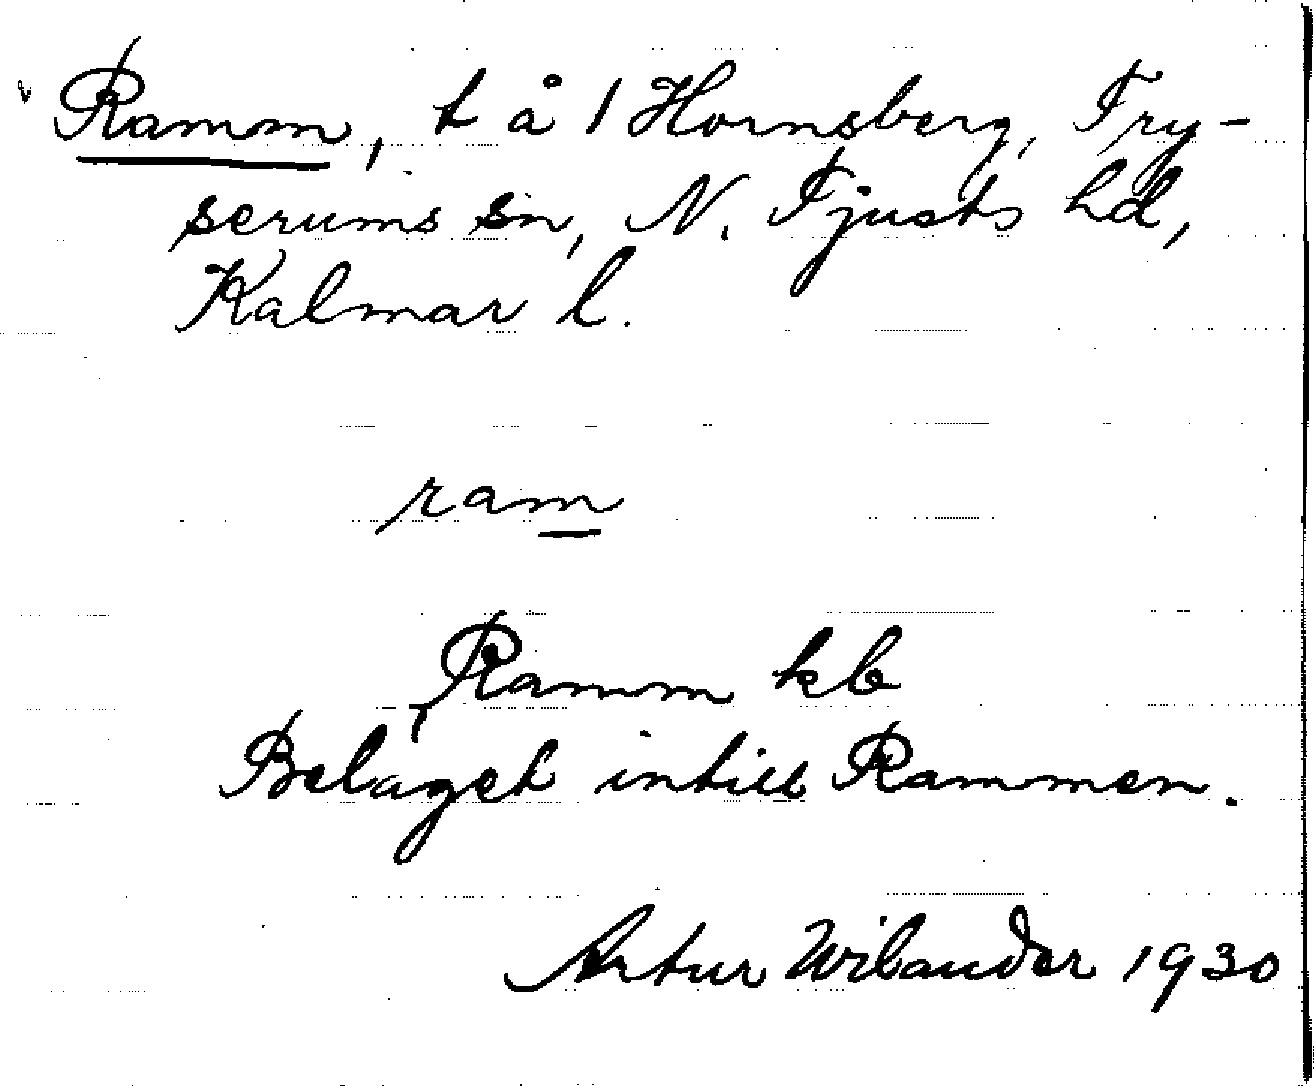 Ramm, t å 1 Hornsberg, Try-
serums sn, N. Tjusts hd,
Kalmar l.
ram
Ramm kb
Beläget intill Rammen.
Artur Wilander 1930